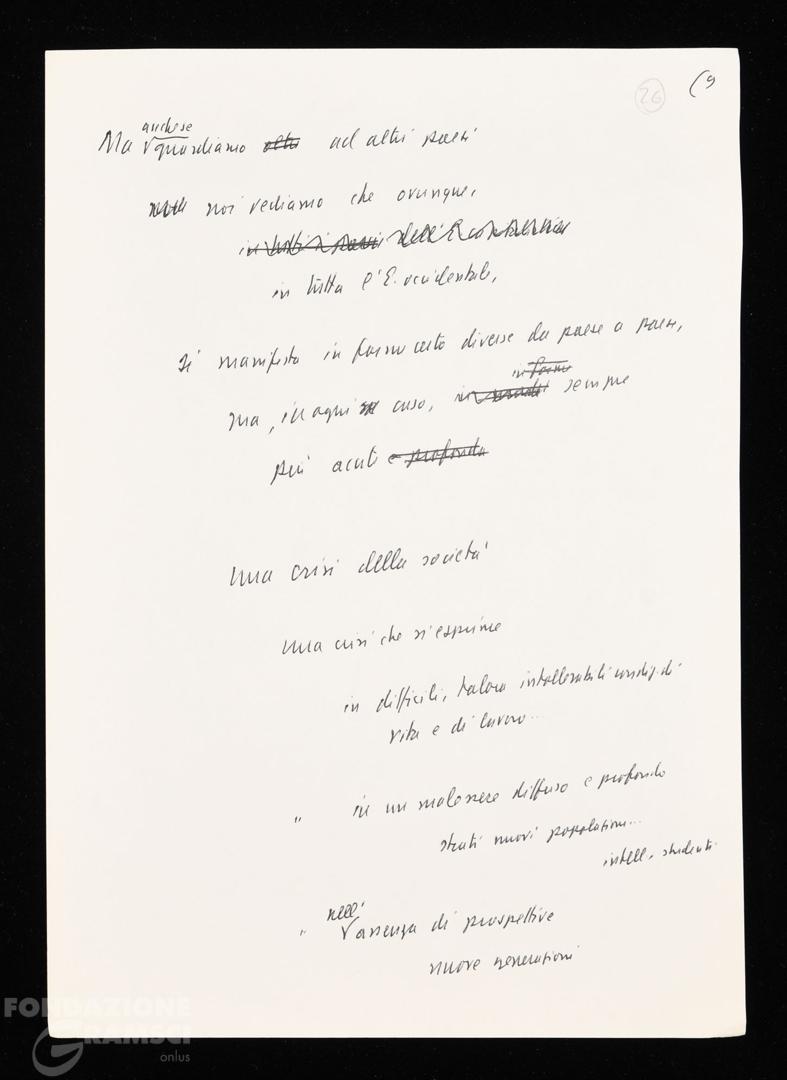 26
(9
anche se
Ma guardiamo altri ad altri paesi
noi vediamo che ovunque,
in tutti i paesi dell'E. occidentale
in tutta l'E. occidentale,
si manifesta in forme certo diverse da paese a paese,
in forme
ma, in ogni caso, in modi sempre
più acuti e profonda
una crisi della società
una crisi che si esprime
in difficili, talora intollerabili condiz. di
vita e di lavoro...
" in un malessere diffuso e profondo
strati nuovi popolazioni...
intell. studenti
nell'
" assenza di prospettive
nuove generazioni
FONDAZIONE
GRAMSCI
onlus